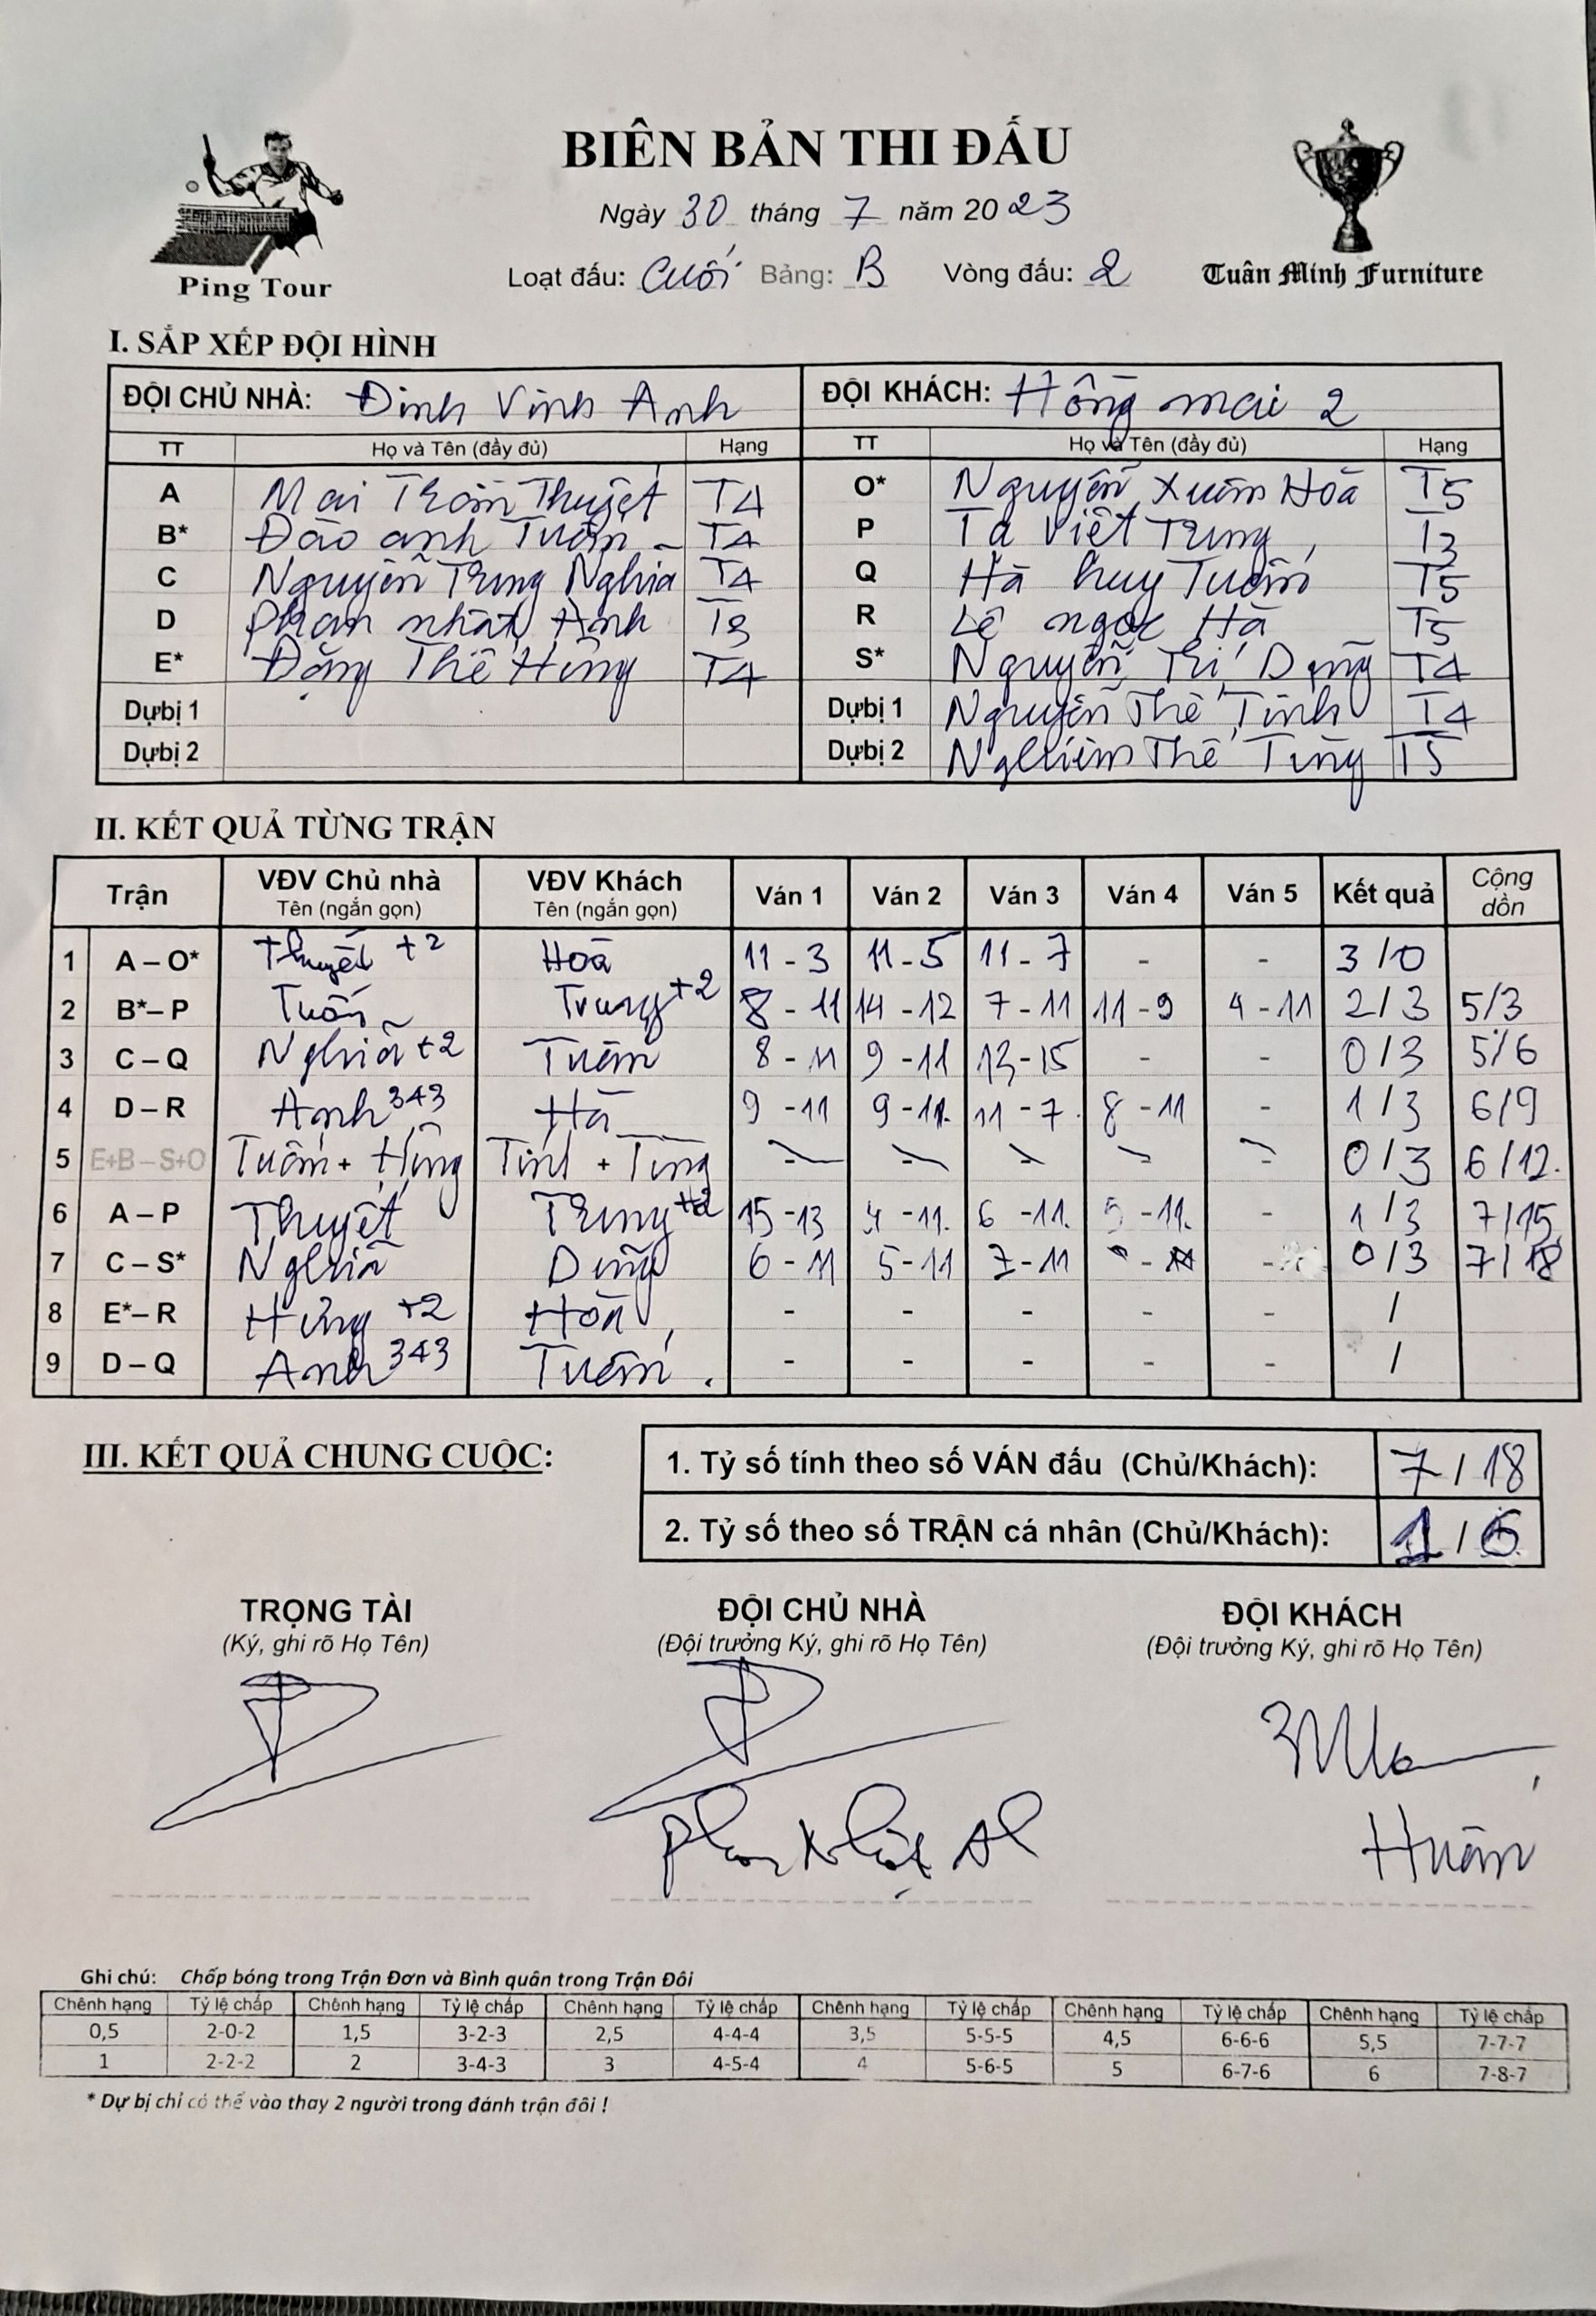 BIÊN BẢN THI ĐẤU
Ngày 30 tháng 7 năm 2023
Loạt đấu: Cuối Bảng: B Vòng đấu: 2
Ping Tour
Tuân Minh Furniture
I. SẮP XẾP ĐỘI HÌNH
ĐỘI CHỦ NHÀ: Đinh Vinh Anh ĐỘI KHÁCH: Hồng mai 2
TT Họ và Tên (đầy đủ) Hạng TT Họ và Tên (đầy đủ) Hạng
A Mai Trần Thuyết T4 O* Nguyễn Xuân Hoà T5
B* Đào anh Tuấn T4 P Tạ Việt Trung T3
C Nguyễn Trung Nghĩa T4 Q Hà huy Tuấn T5
D Phan nhật Anh T3 R Lê ngọc Hà T5
E* Đặng Thế Hùng T4 S* Nguyễn Trí Dũng T4
Dự bị 1 Dự bị 1 Nguyễn Thế Tính T4
Dự bị 2 Dự bị 2 Nghiêm Thế Tùng T5
II. KẾT QUẢ TỪNG TRẬN
Trận VĐV Chủ nhà Tên (ngắn gọn) VĐV Khách Tên (ngắn gọn) Ván 1 Ván 2 Ván 3 Ván 4 Ván 5 Kết quả Cộng dồn
1 A – O* Thuyết +2 Hoà 11 - 3 11 - 5 11 - 7 - - 3 / 0
2 B* – P Tuấn Trung +2 8 - 11 14 - 12 7 - 11 11 - 9 4 - 11 2 / 3 5/3
3 C – Q Nghĩa +2 Tuấn 8 - 11 9 - 11 13 - 15 - - 0 / 3 5/6
4 D – R Anh 343 Hà 9 - 11 9 - 11 11 - 7 8 - 11 - 1 / 3 6/9
5 E+B – S+O Tuấn + Hùng Tính + Tùng - - - - - 0 / 3 6/12.
6 A – P Thuyết Trung +2 15 - 13 4 - 11. 6 - 11. 5 - 11. - 1 / 3 7/15
7 C – S* Nghĩa Dũng 6 - 11 5 - 11 7 - 11 - - 0 / 3 7/18
8 E* – R Hùng +2 Hoà - - - - - /
9 D – Q Anh 343 Tuấn. - - - - - /
III. KẾT QUẢ CHUNG CUỘC:
1. Tỷ số tính theo số VÁN đấu (Chủ/Khách): 7 / 18
2. Tỷ số theo số TRẬN cá nhân (Chủ/Khách): 1 / 6
TRỌNG TÀI ĐỘI CHỦ NHÀ ĐỘI KHÁCH
(Ký, ghi rõ Họ Tên) (Đội trưởng Ký, ghi rõ Họ Tên) (Đội trưởng Ký, ghi rõ Họ Tên)
Phan Nhật Anh Huấn
Ghi chú: Chấp bóng trong Trận Đơn và Bình quân trong Trận Đôi
Chênh hạng Tỷ lệ chấp Chênh hạng Tỷ lệ chấp Chênh hạng Tỷ lệ chấp Chênh hạng Tỷ lệ chấp Chênh hạng Tỷ lệ chấp Chênh hạng Tỷ lệ chấp
0,5 2-0-2 1,5 3-2-3 2,5 4-4-4 3,5 5-5-5 4,5 6-6-6 5,5 7-7-7
1 2-2-2 2 3-4-3 3 4-5-4 4 5-6-5 5 6-7-6 6 7-8-7
* Dự bị chỉ có thể vào thay 2 người trong đánh trận đôi !